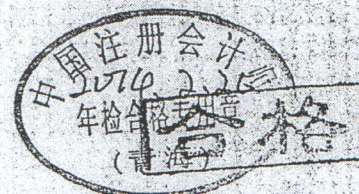 中国注册会计师
2014 2 26
年检合格专用章
(青海)
合格